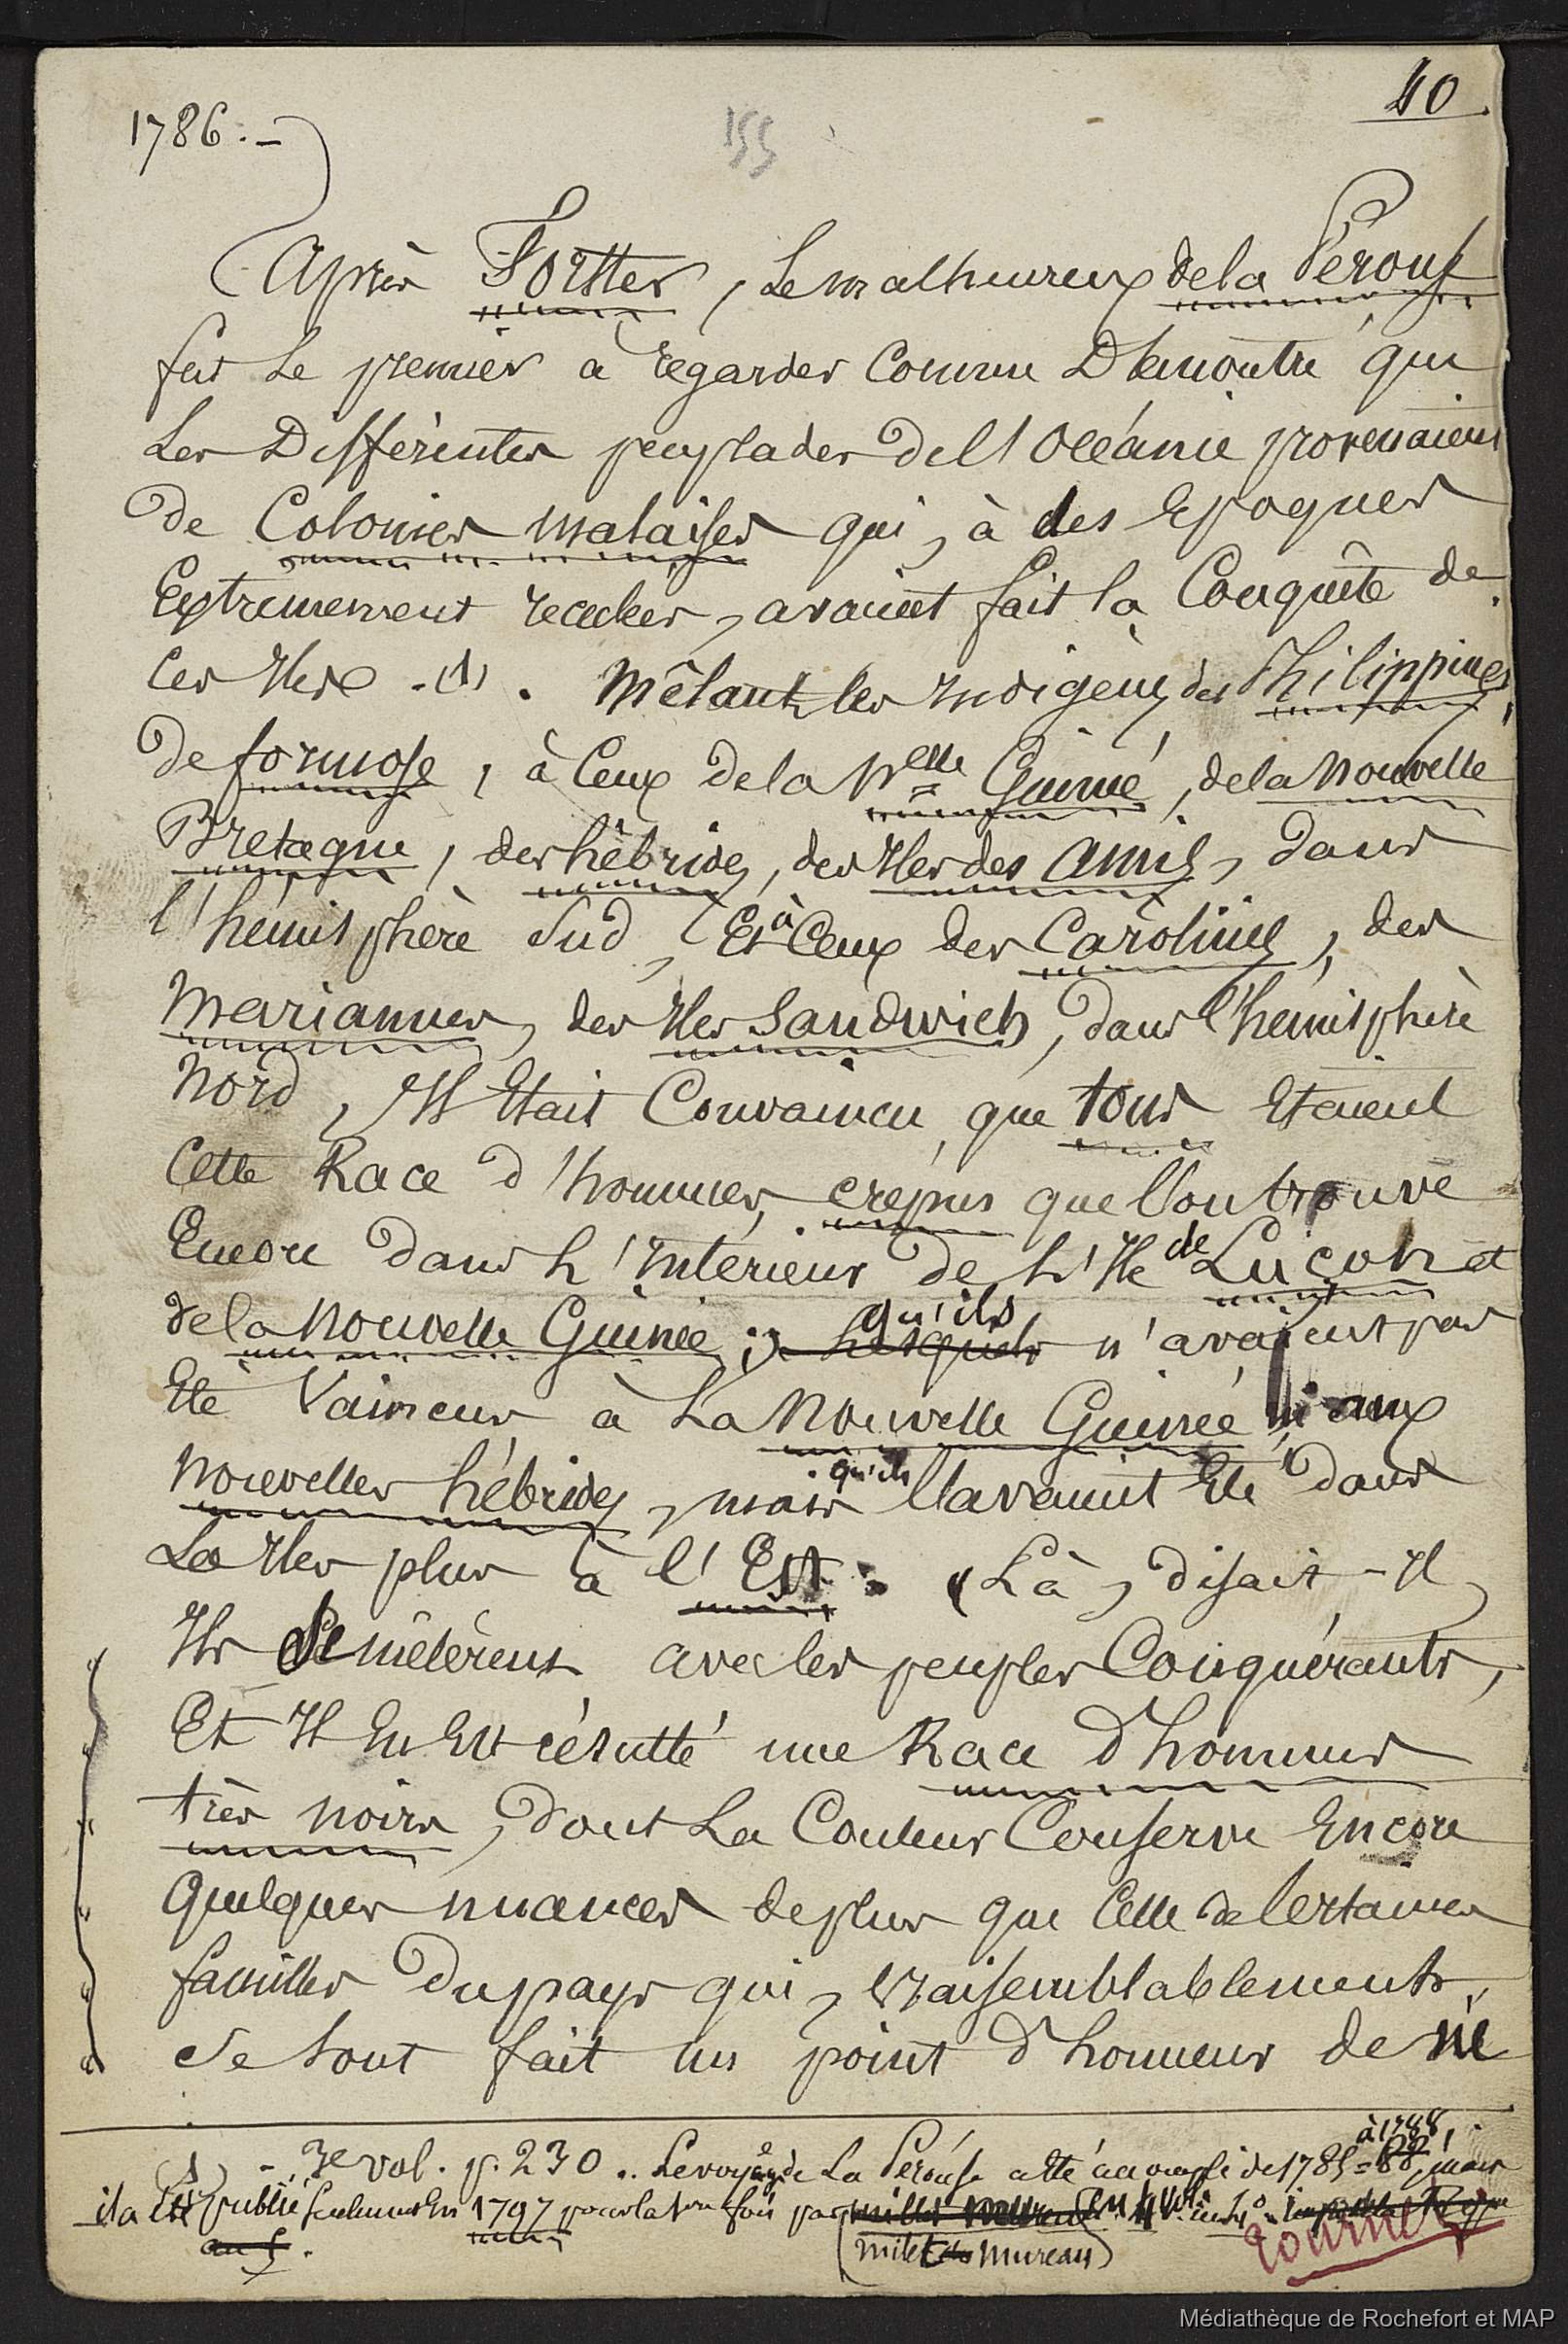 40.
1786. –
155
Après Forster, Le malheureux de la Pérouse
fut Le premier à regarder comme Démontré que
Les Différentes peuplades de l'Océanie provenaient
de Colonies malaises qui, à des Epoques
Extrêmement reculées, avaient fait la Conquête de
Ces Iles. (1). Mêlant les Indigènes des Philippines,
de formose, à Ceux de la Nelle Guinée, de la nouvelle
Bretagne, des hébrides, des Iles des amis, dans
l'hémisphère Sud, Et à Ceux des Carolines, des
Mariannes, des Iles Sandwich, dans l'hémisphère
Nord, Il Etait Convaincu que tous Etaient
Cette Race d'hommes crépus que l'on trouve
Encore dans L'Intérieur de L'Ile de Luçon et
de la Nouvelle Guinée; lesquels qu'ils n'avaient pas
Eté Vaincus à La Nouvelle Guinée, ni aux
Nouvelles hébrides, mais qu'ils l'avaient Eté dans
Les Iles plus à l'Est. "Là, disait-Il,
Ils Se mêlèrent avec les peuples Conquérants,
Et Il En Est résulté une Race d'hommes
très noirs, dont La Couleur Conserve Encore
quelques nuances de plus que Celle de Certaines
familles du pays qui, Vraisemblablement,
Se Sont fait un point d'honneur de ne
(1) – 3e vol. p. 230.. Le voyage de La Pérouse a été accompli de 1785 = 88 à 1788, mais
il a Eté publié Seulement En 1797 pour la 1re fois par En 4 Vol. in 4o
(milet mureau)
tournez
Médiathèque de Rochefort et MAP